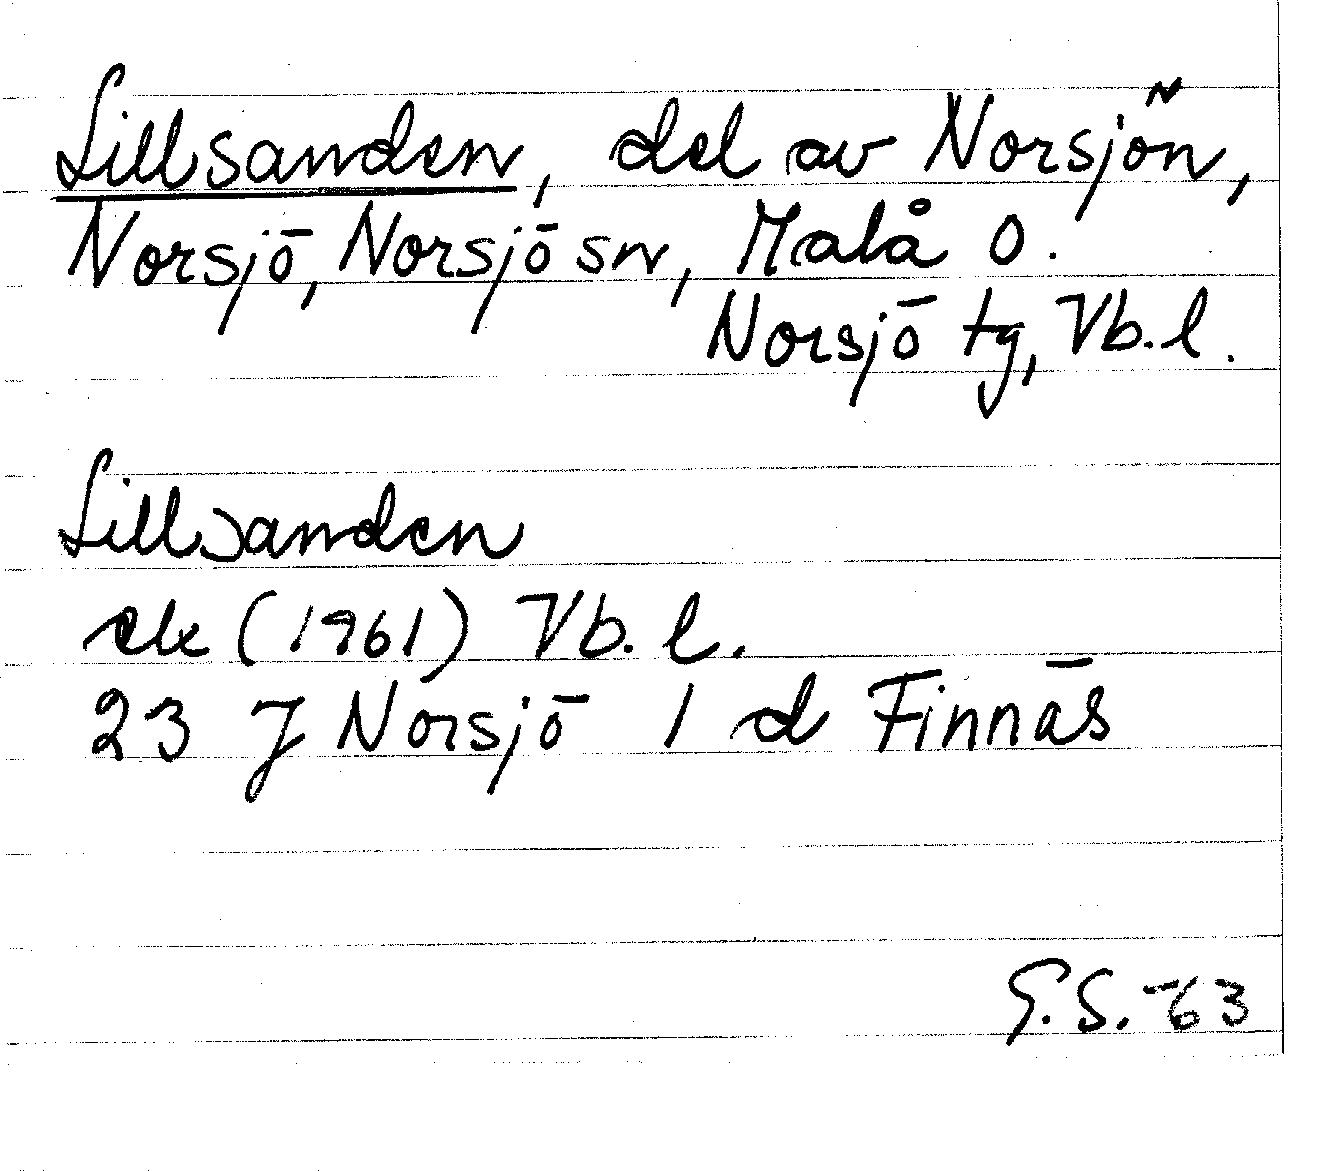 Lillsanden, del av Norsjön,
Norsjö, Norsjö sn, Malå o.
Norsjö tg, Vb. l.
Lillsanden
ek (1961) Vb. l.
23 J Norsjö 1 d Finnäs
G.S. -63